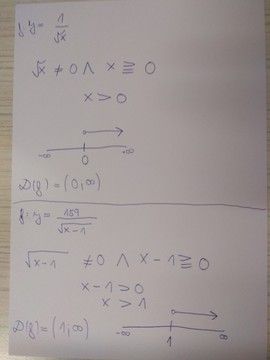 f: y = 1/√x
√x ≠ 0 ∧ x ≧ 0
x > 0
-∞ 0 ∞
D(f) = (0, ∞)
f: y = 159/√x-1
√x-1 ≠ 0 ∧ x-1 ≧ 0
x-1 > 0
x > 1
D(f) = (1, ∞)
-∞ 1 ∞